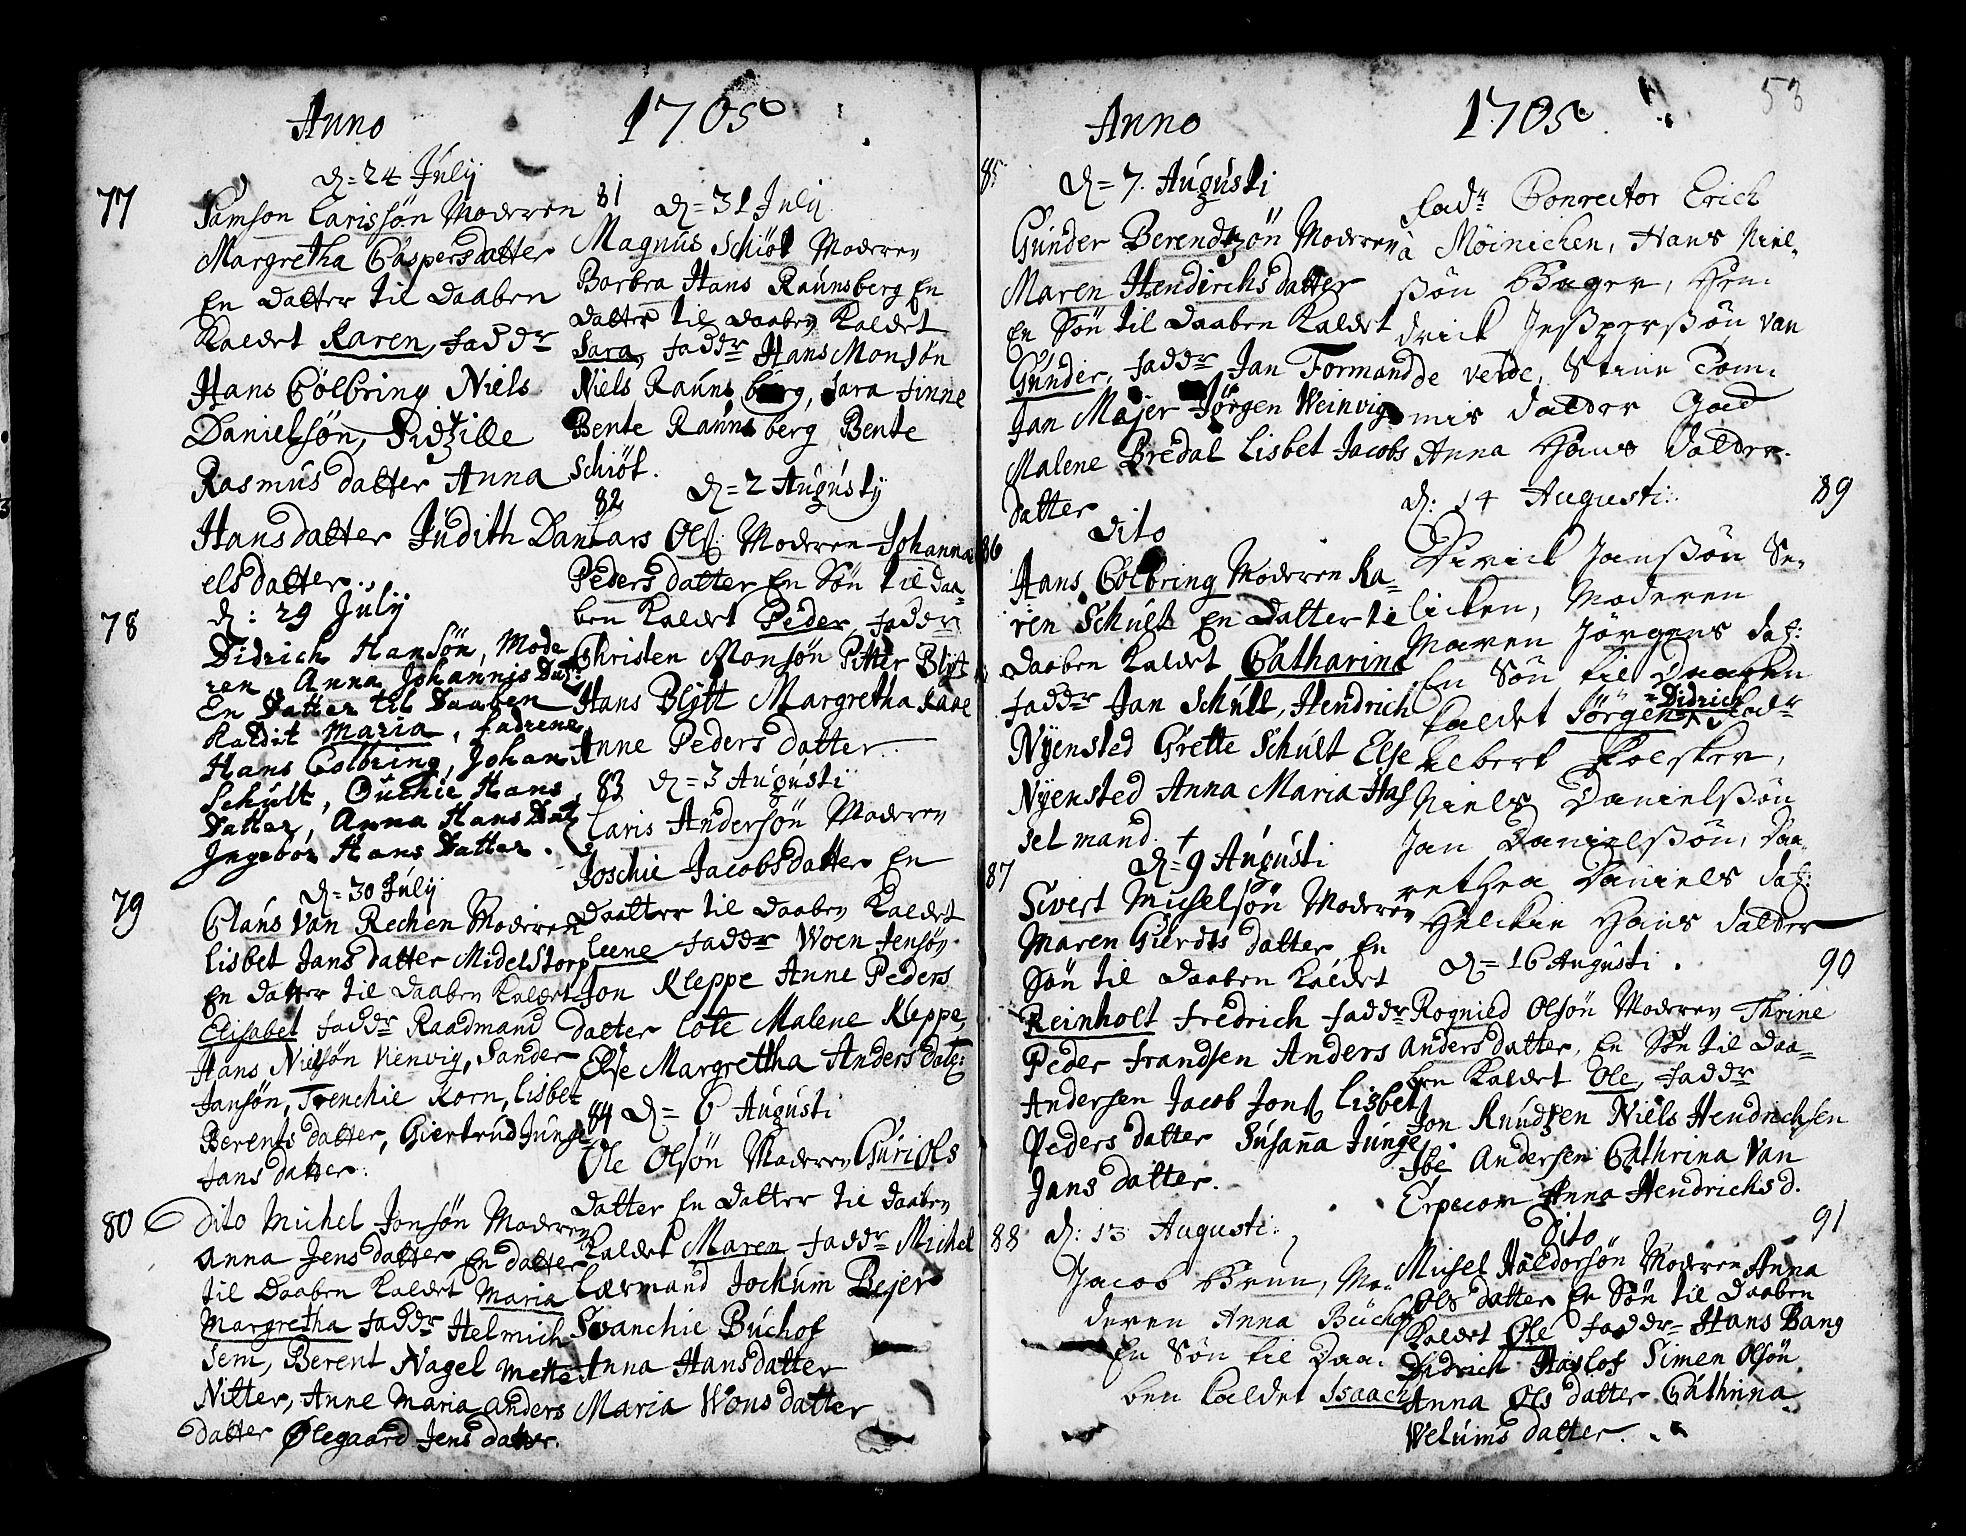 Anno 1705
77
d= 24 Julij
Samson Larissøn Moderen
Margretha Caspersdatter
En datter til daaben
Kaldet Karen, faddr
Hans Cölbring Niels
Danielsøn, Sidzille
Rasmus datter Anna
Hansdatter Judith Dani
elsdatter.
78
d: 29 Julij
Didrich Hansøn, Mode
ren Anna Johannis Dat:
En Datter til Daaben
Kaldit Maria, fadrene
Hans Colbring, Johan
Schult, Ouchie Hans
Datter, Anna Hans Dat
Ingebor Hans Datter.
79
d= 30 Julij
Claus Van Rechen Moderen
Lisbet Jans datter Midelstorp
En datter til Daaben Kaldet
Elisabet faddr Raadmand
Hans Nielsøn Vienvig, Sander
Jansøn, Trenchie Korn, Lisbet
Berents datter, Giertrud Junge
Jans datter.
80
Dito Michel Jonsøn Moderen
Anna Jens datter En datter
til Daaben Kaldet Maria
Margretha faddr Helmich
Sem, Berent Nagel Mette
Nitter, Anne Maria Anders
datter Ølegaard Jens datter.
81
d= 31 Julij
Magnus Schiöt Moderen
Barbra Hans Raunsberg En
datter til daaben Kaldet
Sara, faddr Hans Monsøn
Niels Raunsberg, Sara Finne
Bente Raunsberg Bente
Schiöt.
82
d= 2 Augustij
Lars Ols: Moderen Johanna
Peders datter En Søn til daa=
ben Kaldet Peder, faddr
Christen Monsøn Pitter Blyt
Hans Blytt Margretha
Anne Peders datter.
83 d= 3 Augusti
Laris Andersøn Moderen
Joschie Jacobsdatter En
Daatter til daaben Kaldet
Leene faddr Woen Jensøn
Jon Kleppe Anne Peders
datter Lote Malene Kleppe,
Else Margrettha Anders dat:
84 d= 6 Augusti
Ole Olsøn Moderen Guri Ols
datter En datter til daaben
Kaldet Maren faddr Michel
Lærmand Jochum Bejer
Svanchie Buchof
Anna Hansdatter
Maria Wons datter
Anno 1705
53
85
d= 7. Augusti
Gunder Berendtzøn Moderen
Maren Hendrichs datter
En Søn til daaben Kaldet
Gunder, faddr Jan Formand
Jan Majer Jørgen Weinvig
Malene Bredal Lisbet Jacobs
datter
86
dito
Hans Colbring Moderen Ka=
ren Schult En datter til
daaben Kaldet Catharina
faddr Jan Schult, Hendrich
Nyensted Grette Schult Else
Nyensted Anna Maria Has
selmand. +
87
d= 9 Augusti
Sivert Michelsøn Moderen
Maren Gierdts datter En
Søn til daaben Kaldet
Reinholt Fredrich faddr
Peder Frandsen Anders
Andersen Jacob Jons Lisbet
Peders datter Susaña Junge
Jans datter.
88
d: 13 Augusti:
Jacob Brun, Mo=
deren Anna Buchof
En Søn til Daa=
ben kaldet Isaach
fadr Conrector Erich
à Möinichen, Hans Niel=
ssön Bager, Hen=
drick Jesperssön van
de Velde, Stine Tom=
mis datter
Anna Hans datter.
89
d: 14 Augusti:
Dirick Janssön Se=
licken, Moderen
Maren Jörgens dat:
En Søn til Daaben
kaldet Jørgen Didrich fadr
Elbert Folsker,
Niels Danielssön
Jan Danielssön,
rethea Daniels dat:
Helckie Hans datter
90
d= 16 Augusti.
Rognied Olsøn Moderen Thrine
Anders datter, En Søn til Daa=
ben Kaldet Ole, faddr
Jon Knudzen Niels Hendrichsen
Ibe Andersen Cathrina Van
Erpecom Anna Hendrichs d.
91
Dito
Michel Haldorsøn Moderen Anna
Ols datter En Søn til Daaben
Kaldet Ole faddr= Hans Bang
Didrich Haslof Simen Olsøn
Anna Ols datter Cathrina
Velums datter.